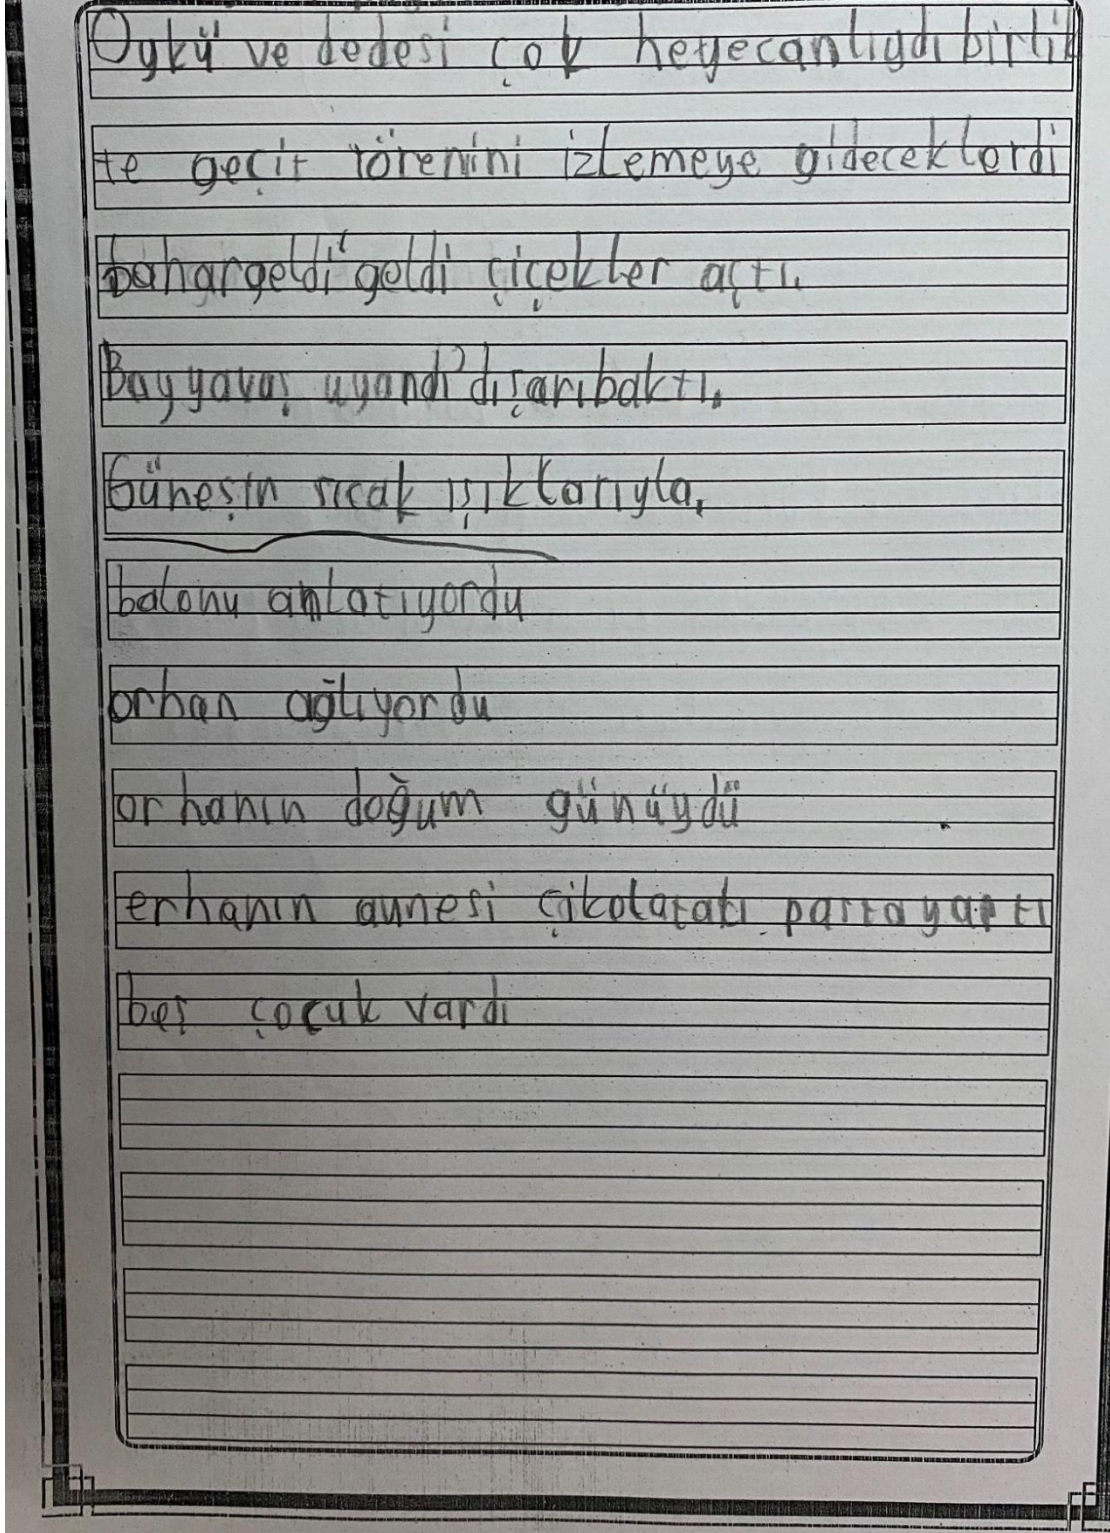 Öykü ve dedesi çok heyecanlıydı birlik
te geçit törenini izlemeye gideceklerdi
bahargeldi geldi çiçekler açtı.
Bay yavaş uyandı dışarıbaktı.
Güneşin sıcak ışıklarıyla,
balonu anlatıyordu
orhan ağlıyordu
orhanın doğum günüydü
erhanın annesi çikolatalı pasta yaptı
beş çocuk vardı